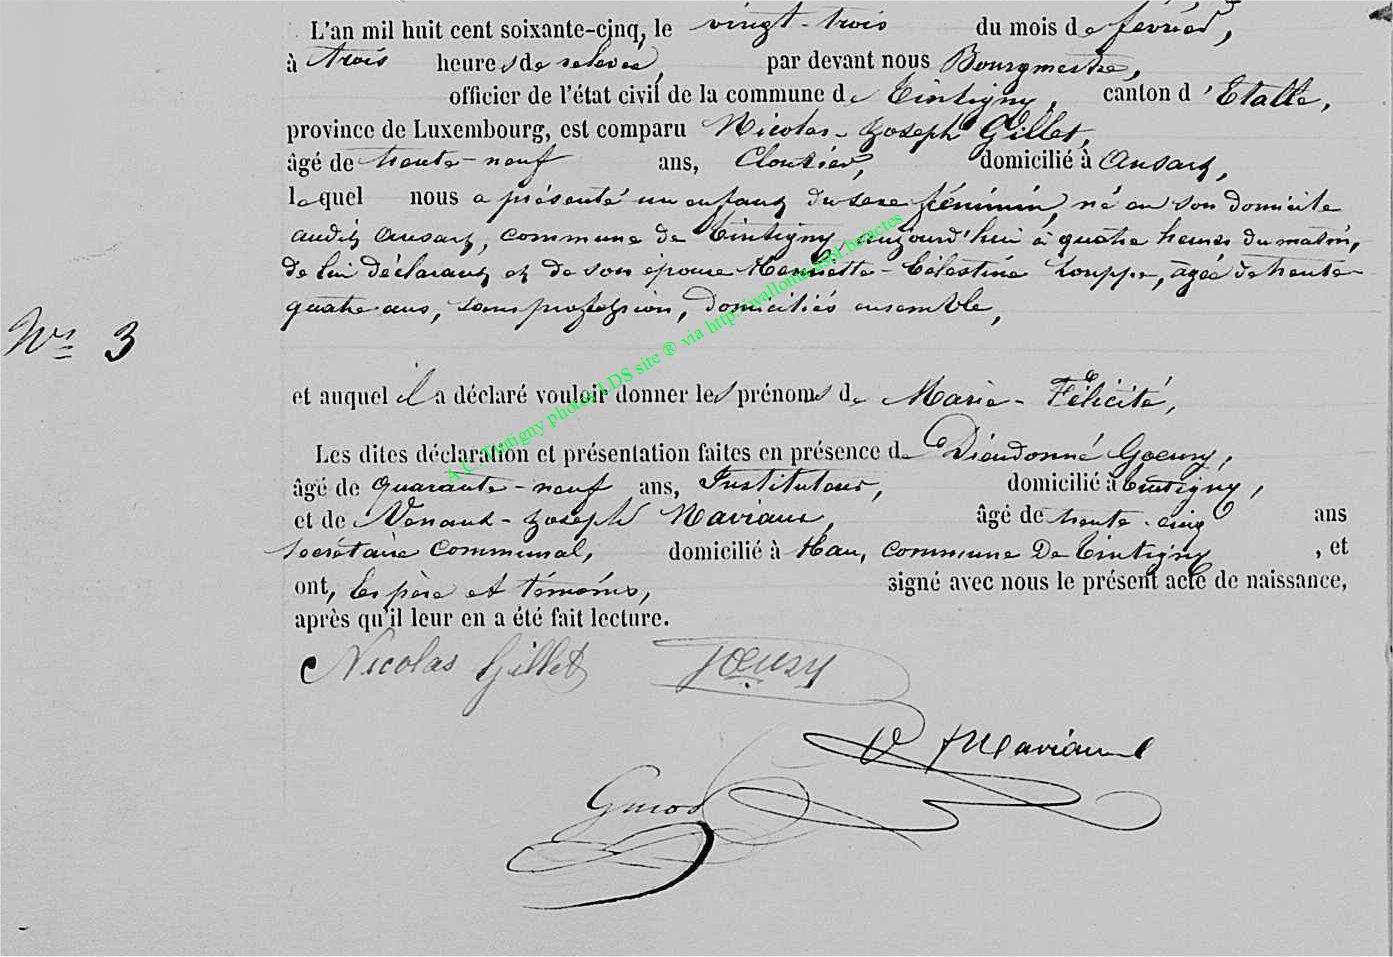 L'an mil huit cent soixante-cinq, le vingt-trois du mois de février,
à trois heures de relevée, par devant nous Bourgmestre,
officier de l'état civil de la commune de Tintigny, canton d'Etalle,
province de Luxembourg, est comparu Nicolas-Joseph Gillet,
âgé de trente-neuf ans, Cloutier, domicilié à Ansart,
lequel nous a présenté un enfant du sexe féminin, né en son domicile
audit Ansart, commune de Tintigny, aujourd'hui à quatre heures du matin,
de lui déclarant et de son épouse Henriette-Célestine Louppe, âgée de trente-
quatre ans, sans profession, domiciliés ensemble,
Nº 3
et auquel il a déclaré vouloir donner les prénoms de Marie-Félicité,
Les dites déclaration et présentation faites en présence de Dieudonné Goeury,
âgé de quarante-neuf ans, Instituteur, domicilié à Tintigny,
et de Joseph Maviaux, âgé de trente-cinq ans
secrétaire communal, domicilié à Han, commune de Tintigny, et
ont, les père et témoins, signé avec nous le présent acte de naissance,
après qu'il leur en a été fait lecture.
Nicolas Gillet Goeury
V J Maviaux
A.C. Tintigny photos LDS site ® via http://wallonia.asbl.be/actes